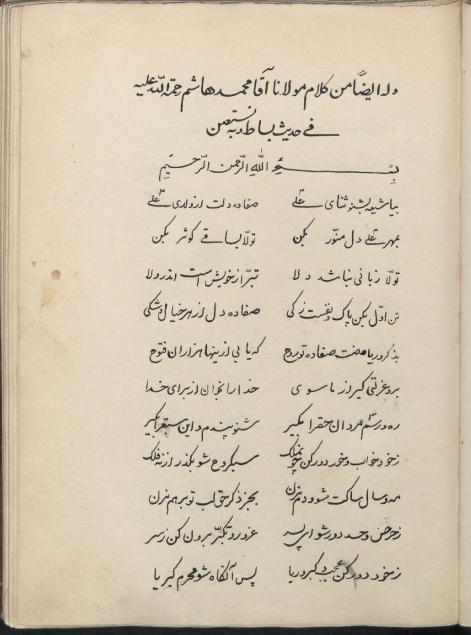 وله ایضاً من کلام مولانا آقا محمد هاشم رحمة الله علیه
فی حدیث بساط و به نستعین
بسم الله الرحمن الرحیم
بیا شیعه بشنو ثنای علی صفا ده دلت از ولای علی
بمهر علی دل منور بکن تولا بساقی کوثر بکن
تولا زبانی نباشد دلا تبرا ز خویش است اندر ولا
تن اول بکن پاک و نفست زکی صفا ده دل از هر خیال و شکی
بذکر و ریاضت صفا ده تو روح که یابی از ینها هزاران فتوح
برو عزلتی گیر از ما سوی خدا را بخوان از برای خدا
ره و رسم مردان حق را بگیر شنو پندم و این سفر
ز خود خواب و خور دور کن چون ملک سبک روح شو بگذر از نه فلک
مه و سال ساکت شو و دم مزن بجز ذکر حق لب تو بر هم مزن
ز حرص و حسد دور شو ای پسر غرور و تکبر برون کن ز سر
ز خود دور کن عجب و کبر و ریا پس آنگاه شو محرم کبریا